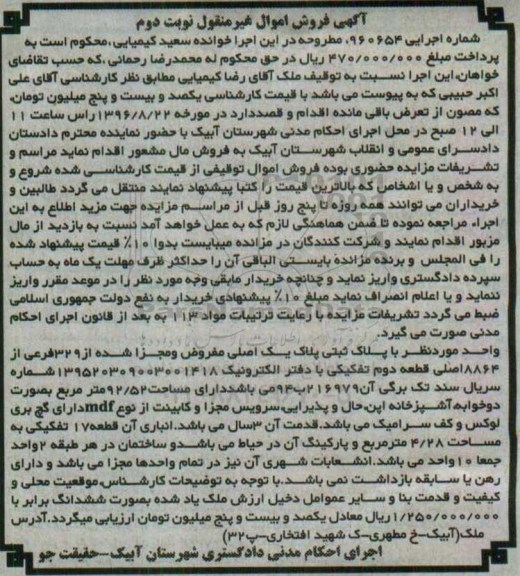 آگهی فروش اموال غیرمنقول نوبت دوم
شماره اجرایی ۹۶۰۶۵۴، مطروحه در این اجرا خوانده سعید کیمیایی،محکوم است به
پرداخت مبلغ ۴۷۰/۰۰۰/۰۰۰ ریال در حق محکوم له محمدرضا رحمانی،که حسب تقاضای
خواهان، این اجرا نسبت به توقیف ملک آقای رضا کیمیایی مطابق نظر کارشناسی آقای علی
اکبر حبیبی که به پیوست می باشد با قیمت کارشناسی یکصد و بیست و پنج میلیون تومان،
که مصون از تعرض باقی مانده اقدام و قصددارد در مورخه ۱۳۹۶/۸/۲۲ راس ساعت ۱۱
الی ۱۲ صبح در محل اجرای احکام مدنی شهرستان آبیک با حضور نماینده محترم دادستان
دادسرای عمومی و انقلاب شهرستان آبیک به فروش مال مشعور اقدام نماید مراسم و
تشریفات مزایده حضوری بوده فروش اموال توقیفی از قیمت کارشناسی شده شروع و
به شخص و یا اشخاص که بالاترین قیمت را کتبا پیشنهاد نمایند منتقل می گردد طالبین و
خریداران می توانند همه روزه تا پنج روز قبل از مراسم مزایده جهت مزید اطلاع به این
اجراء مراجعه نموده تا ضمن هماهنگی لازم که به عمل خواهد آمد نسبت به بازدید از مال
مزبور اقدام نمایند و شرکت کنندگان در مزانده میبایست بدوا ۱۰٪ قیمت پیشنهاد شده
را فی المجلس و برنده مزانده بایستی الباقی آن را حداکثر ظرف مهلت یک ماه به حساب
سپرده دادگستری واریز نماید و چنانچه خریدار مابقی وجه مورد نظر را در موعد مقرر واریز
ننماید و یا اعلام انصراف نماید مبلغ ۱۰٪ پیشنهادی خریدار به نفع دولت جمهوری اسلامی
ضبط می گردد تشریفات مزایده با رعایت ترتیبات مواد ۱۱۳ به بعد از قانون اجرای احکام
مدنی صورت می گیرد.
واحد موردنظر با پلاک ثبتی پلاک یک اصلی مفروض ومجزا شده از۳۲۹فرعی از
۸۸۶۴اصلی قطعه دوم تفکیکی با دفتر الکترونیک ۱۳۹۵۲۰۳۰۹۰۰۳۰۰۱۴۱۸ شماره
سریال سند تک برگی آن۲۱۶۹۷۹ب۹۴می باشددارای مساحت۹۲/۵۲متر مربع بصورت
دوخوابه،آشپزخانه اپن،حال و پذیرایی،سرویس مجزا و کابینت از نوعmdfدارای گچ بری
لوکس و کف سرامیک می باشد.قدمت آن ۳سال می باشد.انباری آن قطعه۱۷ تفکیکی به
مساحت ۴/۲۸ مترمربع و پارکینگ آن در حیاط می باشدو ساختمان در هر طبقه ۲واحد
جمعا ۱۰واحد می باشد.انشعابات شهری آن نیز در تمام واحدها مجزا می باشد و دارای
رهن یا سابقه بازداشت نمی باشد.با توجه به توضیحات کارشناس،موقعیت محلی و
کیفیت و قدمت بنا و سایر عوامل دخیل ارزش ملک یاد شده بصورت ششدانگ برابر با
۱/۲۵۰/۰۰۰/۰۰۰ریال معادل یکصد و بیست و پنج میلیون تومان ارزیابی میگردد.آدرس
ملک(آبیک-خ مطهری-ک شهید افتخاری-پ۳۲)
اجرای احکام مدنی دادگستری شهرستان آبیک-حقیقت جو